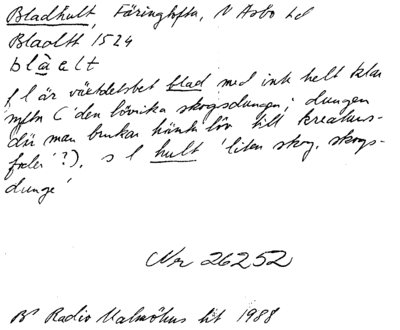 Bladhult, Färingtofta, N Åsbo hd
Bladltt 1524
blàelt
f l är växtdelsbet blad med ink helt klar
mftn ('den lövrika skogsdungen; dungen
där man brukar hämta löv till kreaturs-
foder'?), s l hult 'liten skog, skogs-
dunge'
Nr 26252
Br Radio Malmöhus lit 1988